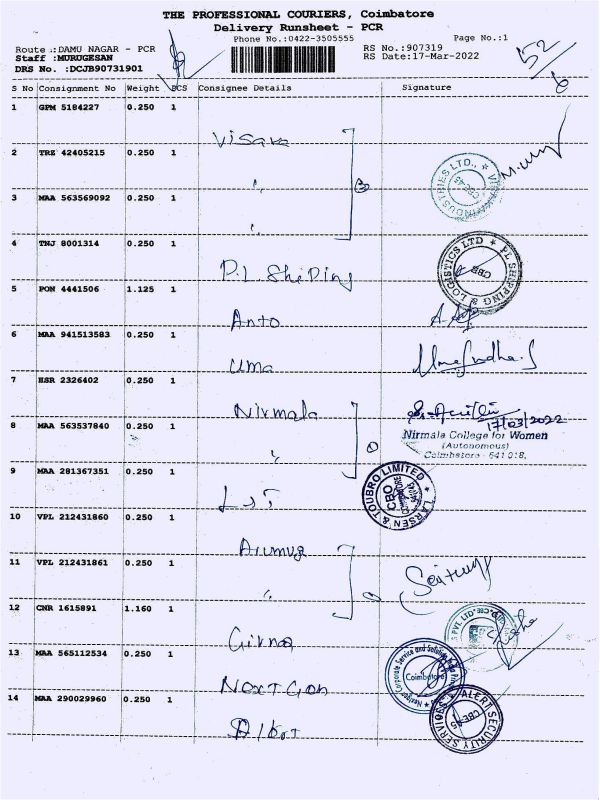 THE PROFESSIONAL COURIERS, Coimbatore
Delivery Runsheet - PCR
Phone No.:0422-3505555
Page No.:1
Route .:DAMU NAGAR - PCR
RS No.:907319
Staff :MURUGESAN
RS Date:17-Mar-2022
DRS No. :DCJB90731901
52/6
S No Consignment No Weight PCS Consignee Details Signature
1 GPM 5184227 0.250 1
Visava
2 TRZ 42405215 0.250 1
"
3 MAA 563569092 0.250 1
"
4 TNJ 8001314 0.250 1
P.L Shiping
PL SHIPPING & LOGISTICS LTD
CBE
5 PON 4441506 1.125 1
Anto
6 MAA 941513583 0.250 1
Uma
Uma Sudha.S
7 HSR 2326402 0.250 1
Nirmala
17/03/2022
8 MAA 563537840 0.250 1
"
Nirmala College for Women
(Autonomous)
Coimbatore - 641 018.
9 MAA 281367351 0.250 1
L&T
LARSEN & TOUBRO LIMITED
CBO
COIMBATORE
10 VPL 212431860 0.250 1
11 VPL 212431861 0.250 1
"
12 CNR 1615891 1.160 1
Girnar
13 MAA 565112534 0.250 1
NextGen
Coimbatore
14 MAA 290029960 0.250 1
ALERT SECURITY SERVICES
CBE-45